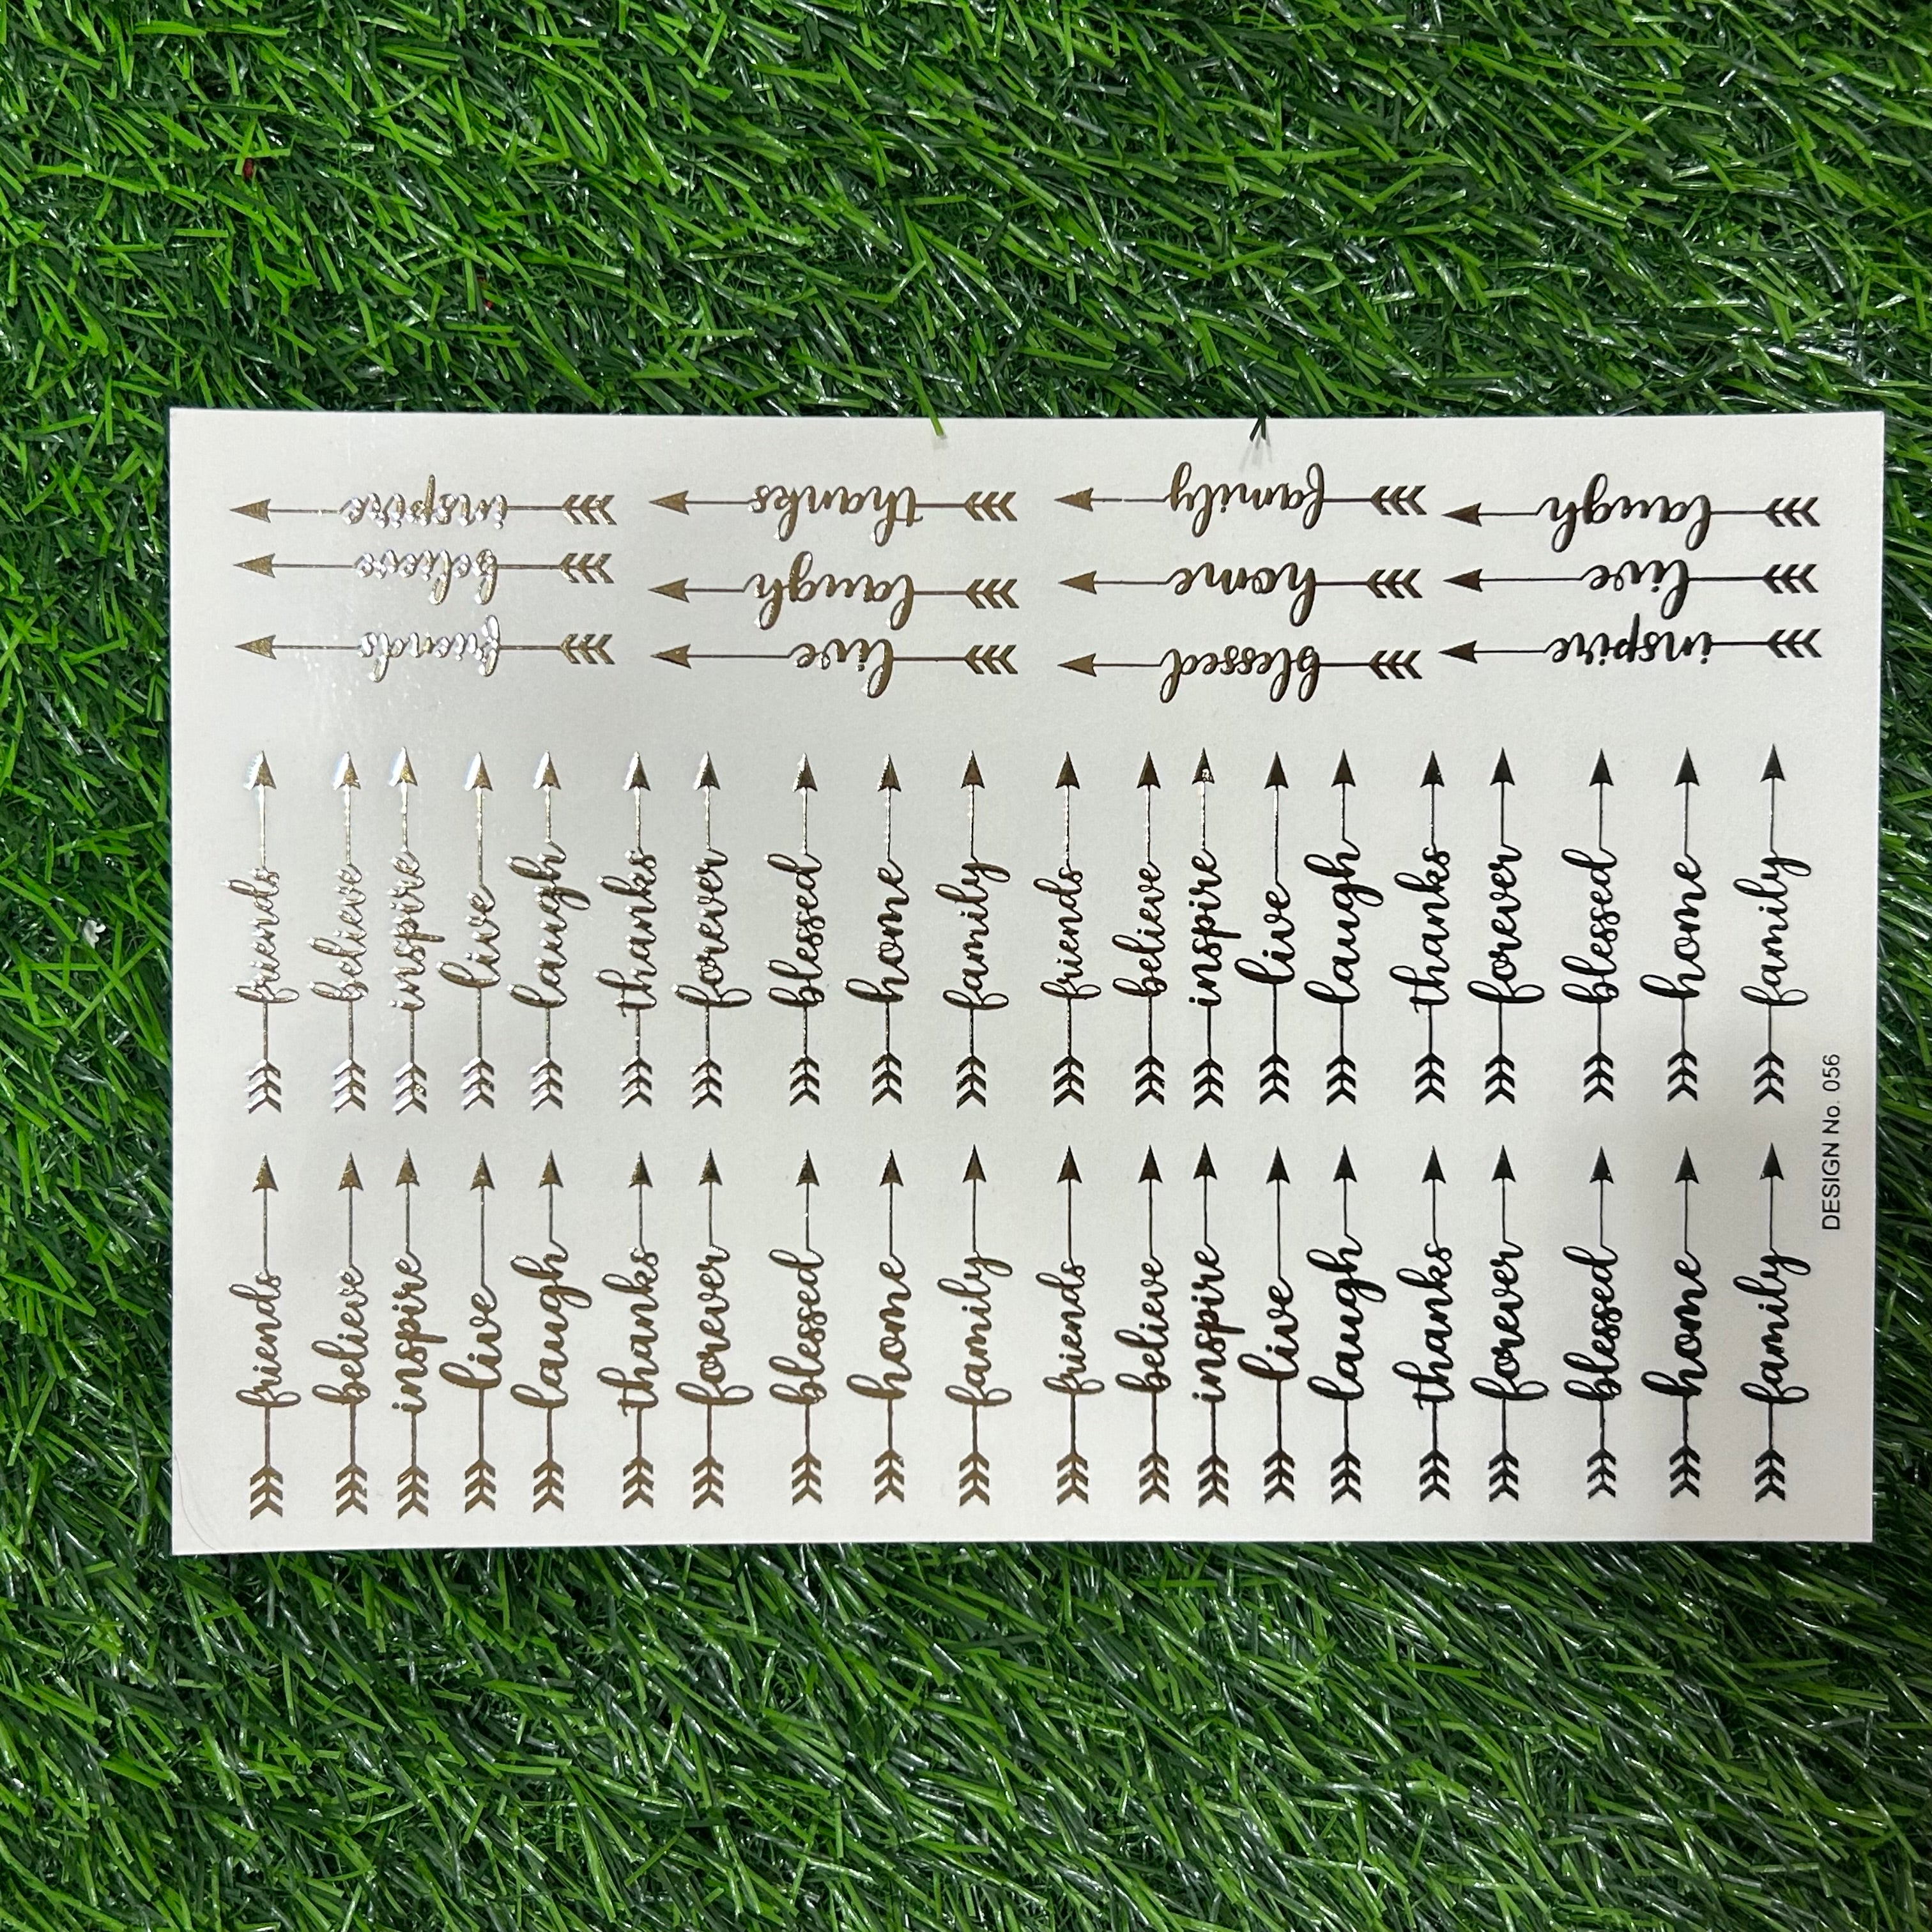 inspire thanks family laugh
believe laugh home live
friends live blessed inspire
friends believe inspire live laugh thanks forever blessed home family friends believe inspire live laugh thanks forever blessed home family
friends believe inspire live laugh thanks forever blessed home family friends believe inspire live laugh thanks forever blessed home family
DESIGN No. 056